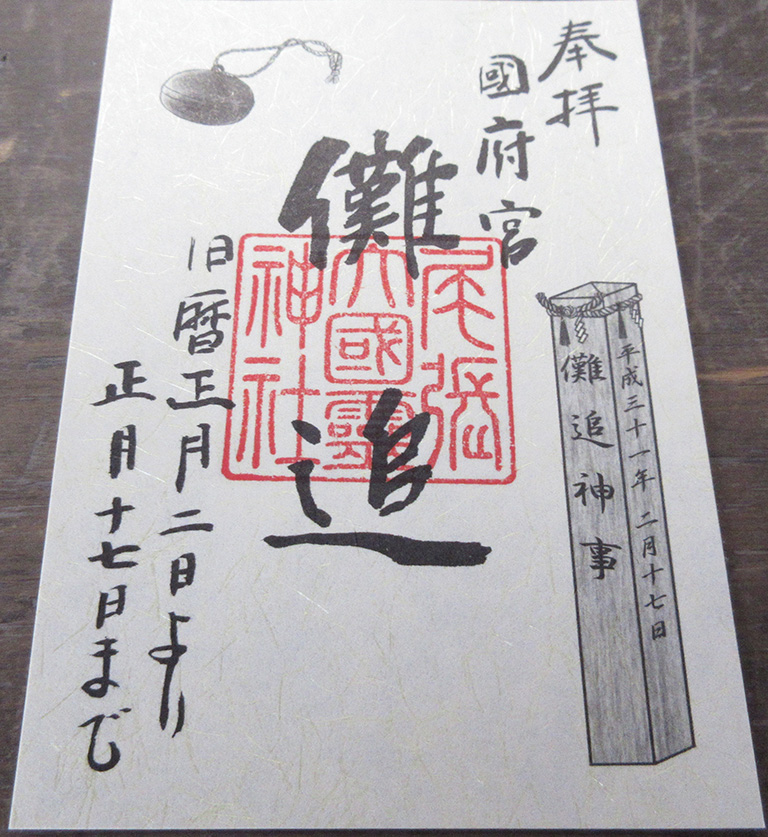 奉拝
國府宮
儺追
尾張
大國霊
神社
旧暦正月二日より
正月十七日まで
平成三十一年 二月十七日
儺追神事